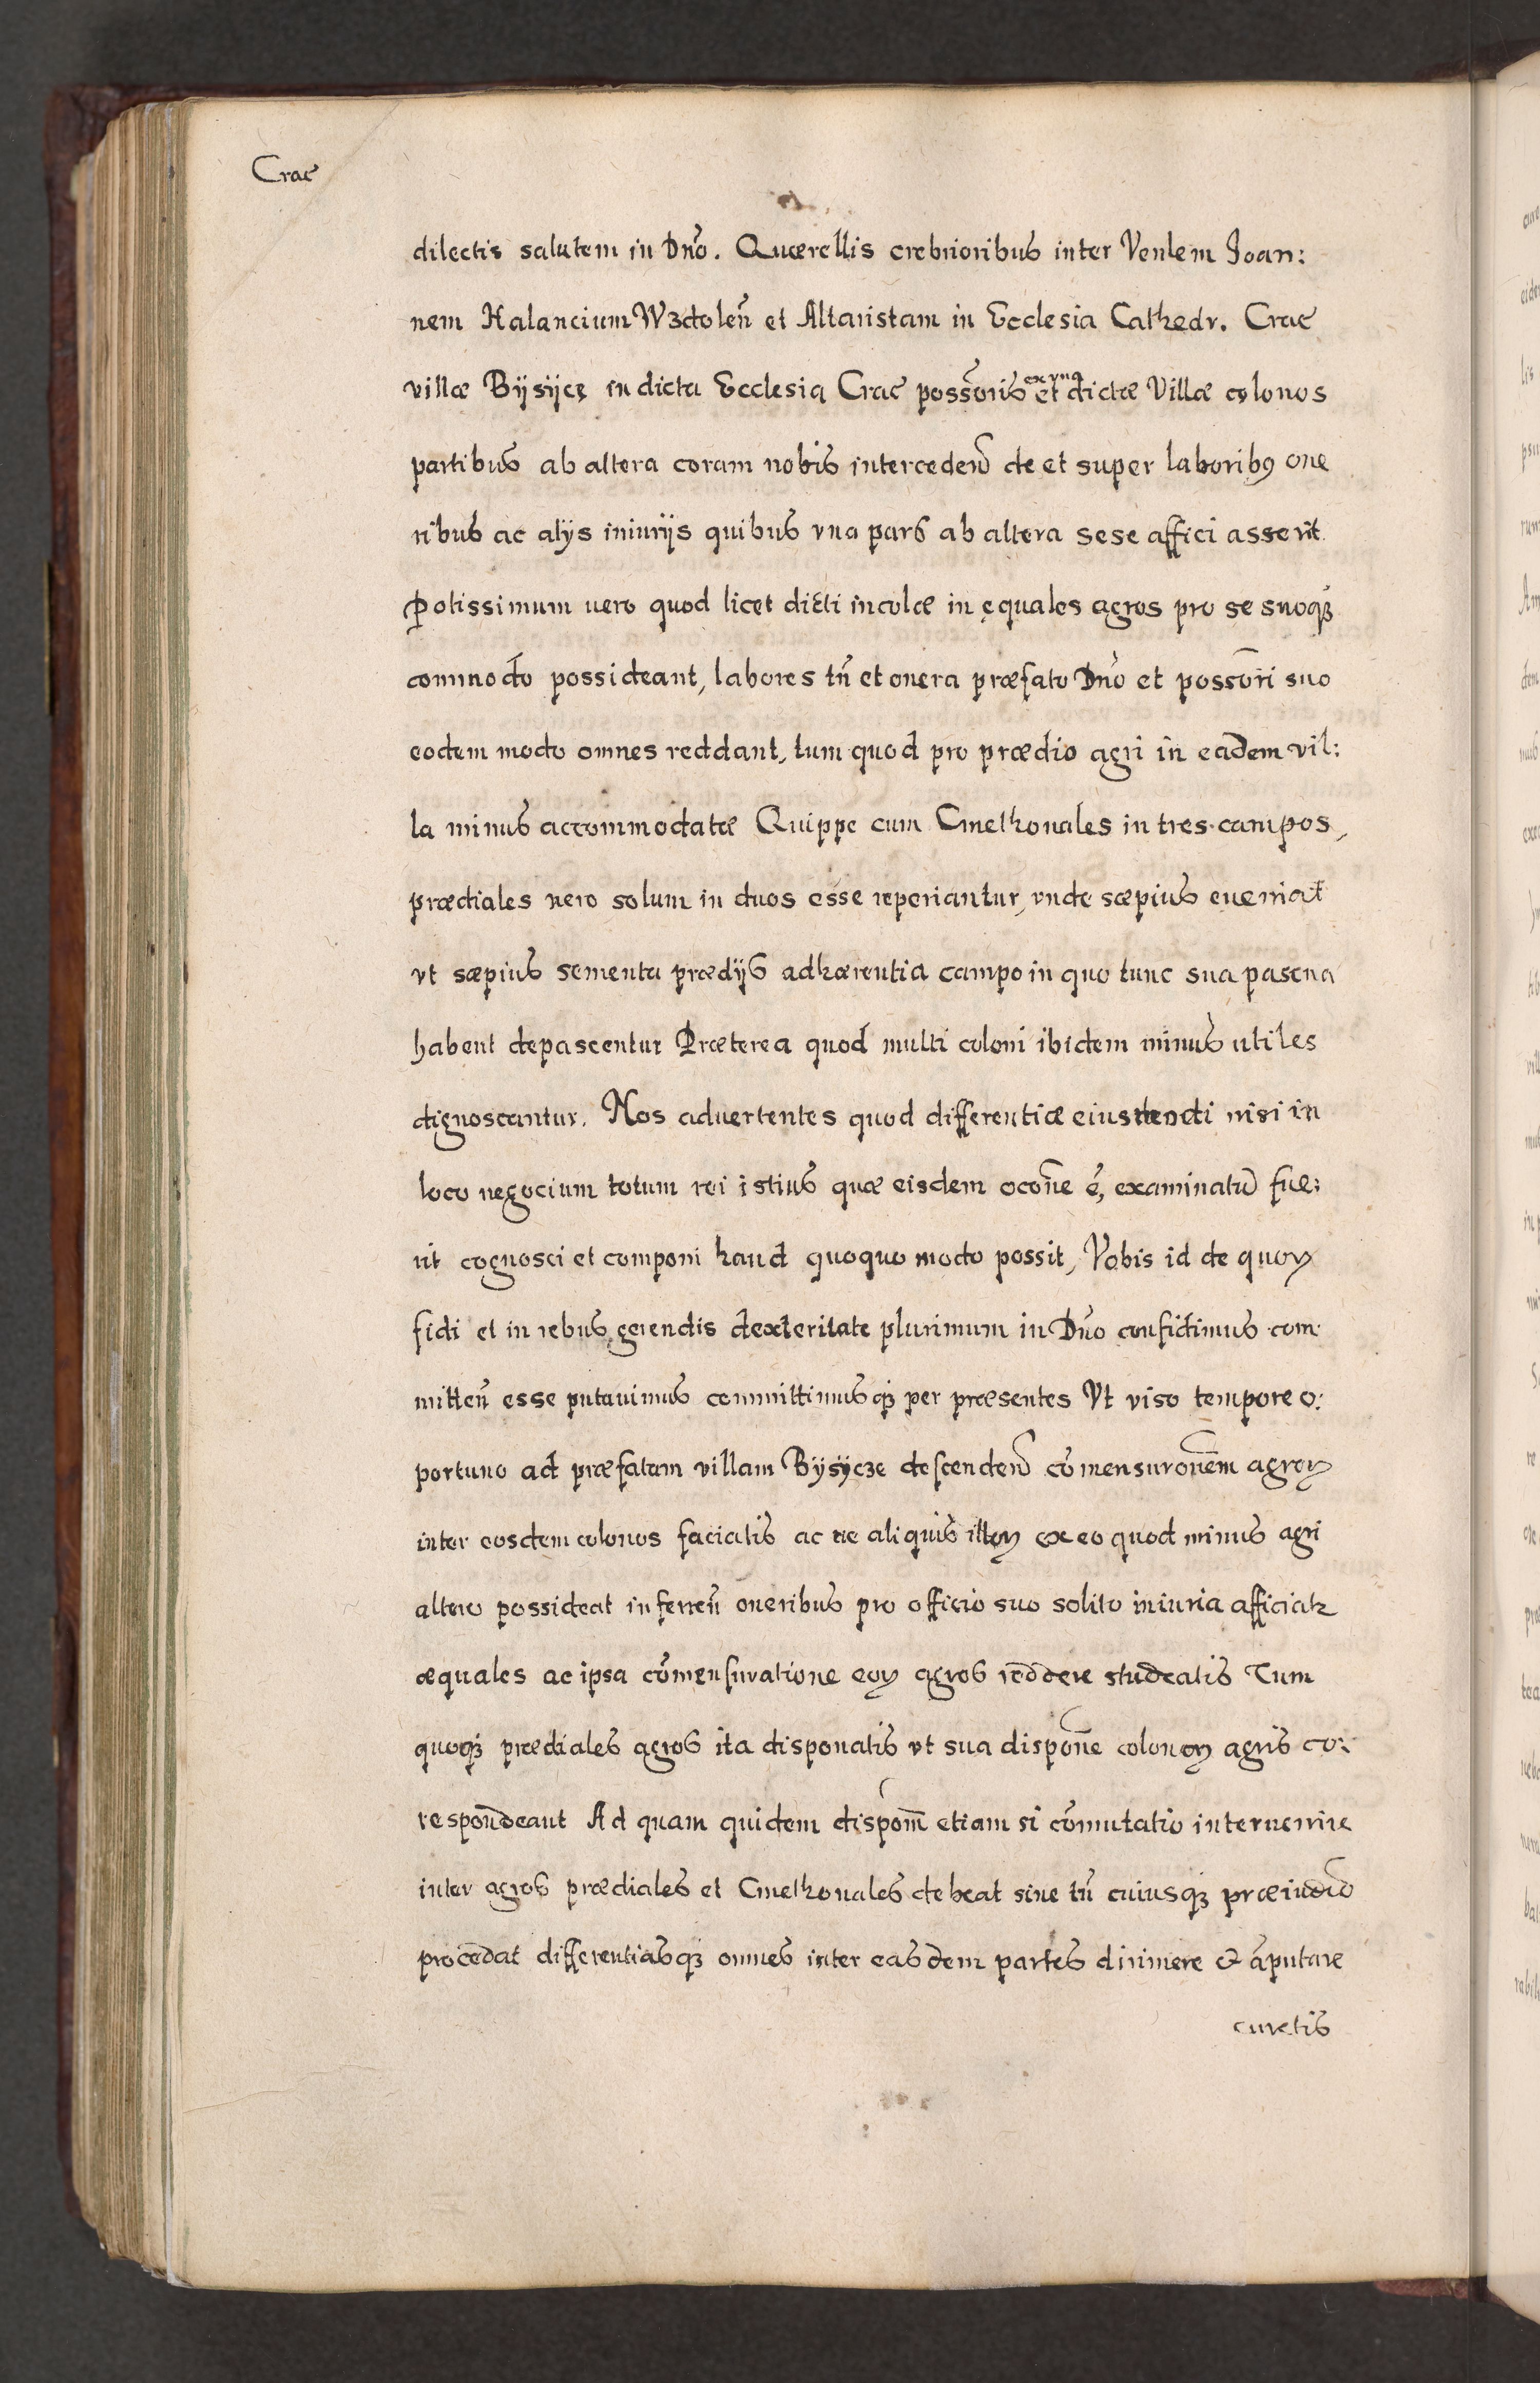 Crac̄
dilectis salutem in Dn̄o. Quærellis crebrioribus inter Venlem Joan:
nem Halancium Wzdolen̄ et Altaristam in Ecclesia Cathedr. Crac̄
villæ Bÿsÿcę in dicta Ecclesia Crac̄ possōris ex vna et dictæ Villæ colonos
partibus ab altera coram nobis interceden̄ de et super laborib9 one
ribus ac alijs iniurijs quibus vna pars ab altera sese affici asserit.
Potissimum vero quod licet dicti incolæ in ęquales agros pro se suoqꝫ
commodo possideant, labores tn̄ et onera præfato Dn̄o et possōri suo
eodem modo omnes reddant, tum quod pro prædio agri in eadem vil:
la minus accommodatæ Quippe cum Cmethonales in tres campos,
prædiales vero solum in duos esse reperiantur, vnde sæpius eueniat
vt sæpius sementa prædijs adhærentia campo in quo tunc sua pascua
habent depascentur Præterea quod multi coloni ibidem minus utiles
dignoscantur. Nos aduertentes quod differentiæ eiusmodi nisi in
loco negocium totum rei istius quæ eisdem ocōne ē, examinatū fue:
rit cognosci et componi haud quoquo modo possit, Vobis id de quoꝝ
fidi et in rebus gerendis dexteritate plurimum in Dn̄o confidimus com
mitten̄ esse putauimus committimusqꝫ per præsentes Vt viso tempore o:
portuno ad præfatam villam Bÿsÿcze descenden̄ com̄ensurōnem agroꝝ
inter eosdem colonos faciatis ac ne aliquis illoꝝ ex eo quod minus agri
altero possideat in ferren̄ oneribus pro officio suo solito iniuria afficiatꝛ
æquales ac ipsa com̄ensuratione eoꝝ agros reddere studeatis Tum
quoqꝫ prædiales agros ita disponatis vt sua dispōne colonoꝝ agris co:
respondeant Ad quam quidem dispōnem̄ etiam si com̄utatio interuenire
inter agros prædiales et Cmethonales debeat sine tn̄ cuiusqꝫ præiudicio
procedat differentiasqꝫ omnes inter easdem partes dirimere & amputare
curetis